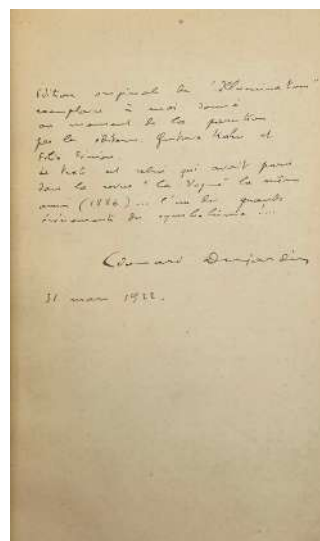 Edition originale des "Illuminations"
exemplaire à moi donné
au moment de la parution
par les éditeurs, Gustave Kahn et
Félix Fénéon.
Le texte est celui qui avait paru
dans la revue "La Vogue" la même
année (1886)... l'un des grands
événements du symbolisme ....
Edouard Dujardin
31 mars 1922.